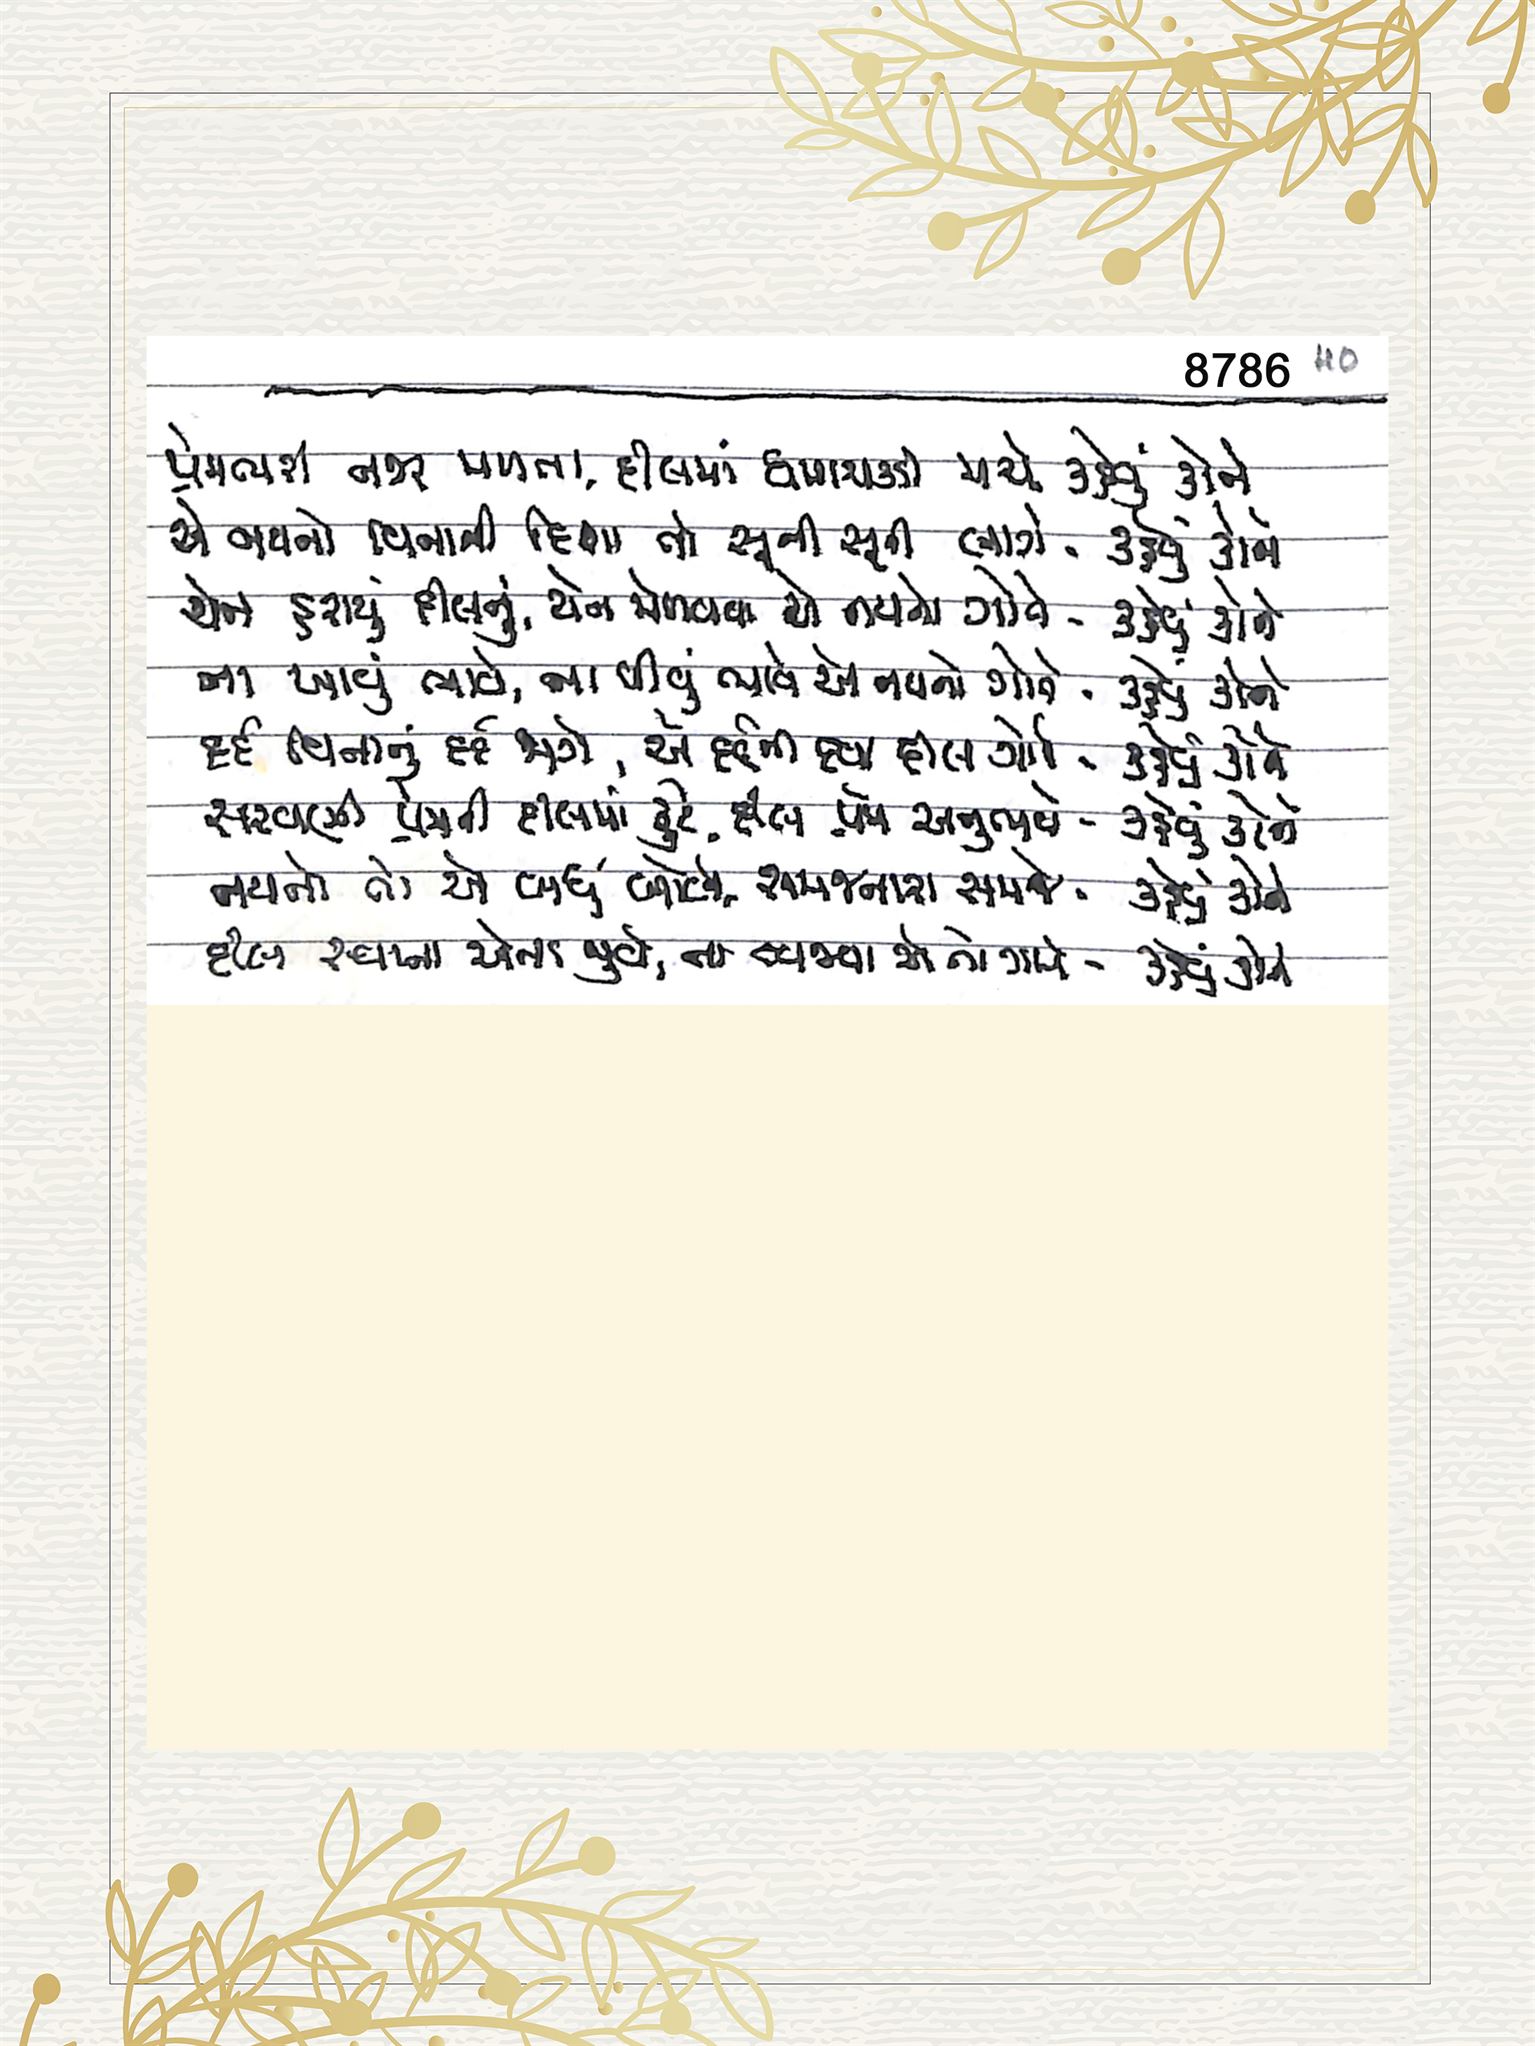 8786 40
પ્રેમભરી નજર મળતા, દીલમાં ધમાચકડી મચે કહેવું કોને
એ નયનો વિનાની દિશા તો સૂની સૂની લાગે - કહેવું કોને
ચેન હરાયું દીલનું, ચેન મેળવવા એ નયનો ગોતે - કહેવું કોને
ના ખાવું ભાવે, ના પીવું ભાવે એ નયનો ગોતે - કહેવું કોને
દર્દ વિનાનું દર્દ જાગે, એ દર્દની દવા દીલ ગોતે - કહેવું કોને
સરવાણી પ્રેમની દીલમાં ફુટે, દીલ પ્રેમ અનુભવે - કહેવું કોને
નયનો તો એ બધું બોલે, સમજનારા સમજે - કહેવું કોને
દીલ સ્વપ્ના એના જુવે, ના બીજા એ તો માગે - કહેવું કોને